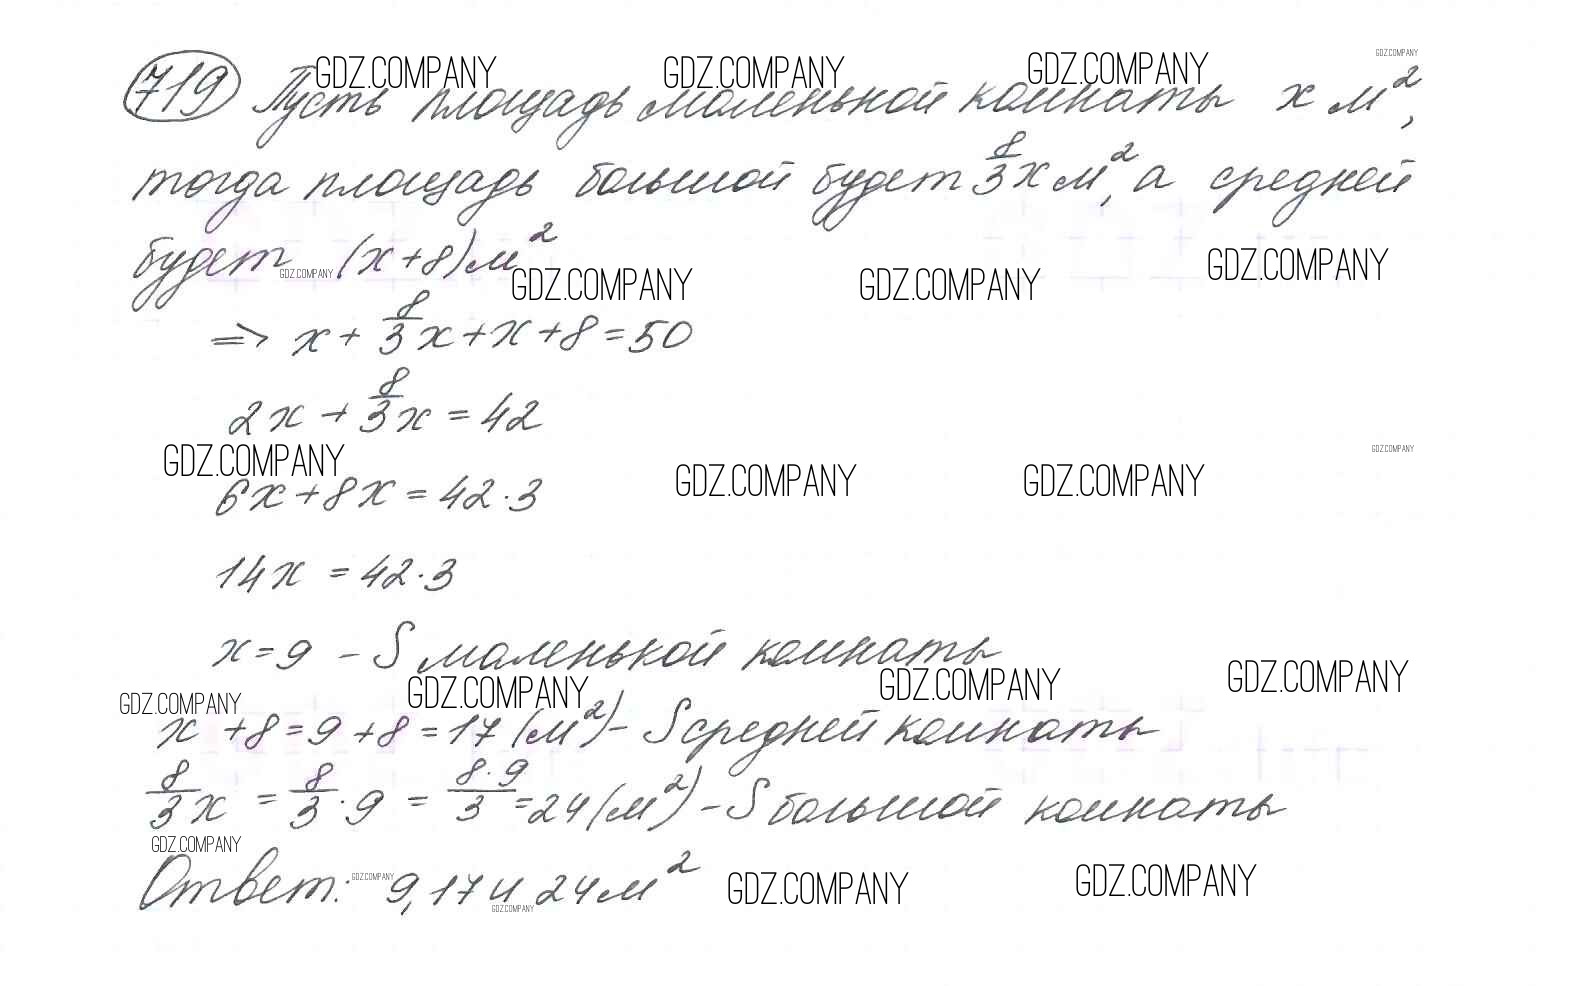 GDZ.COMPANY GDZ.COMPANY GDZ.COMPANY GDZ.COMPANY
719 Пусть площадь маленькой комнаты x м²,
тогда площадь большой будет 8/3 x м², а средней
будет (x+8) м²
GDZ.COMPANY GDZ.COMPANY GDZ.COMPANY GDZ.COMPANY
=> x + 8/3 x + x + 8 = 50
2x + 8/3 x = 42
GDZ.COMPANY GDZ.COMPANY GDZ.COMPANY GDZ.COMPANY
6x + 8x = 42·3
14x = 42·3
x = 9 – S маленькой комнаты
GDZ.COMPANY GDZ.COMPANY GDZ.COMPANY GDZ.COMPANY
x + 8 = 9 + 8 = 17 (м²) – S средней комнаты
8/3 x = 8/3 · 9 = 8·9/3 = 24 (м²) – S большой комнаты
GDZ.COMPANY
Ответ: 9, 17 и 24 м²
GDZ.COMPANY GDZ.COMPANY GDZ.COMPANY GDZ.COMPANY